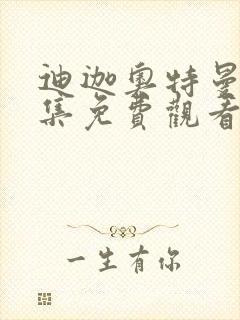 迪迦奥特曼
集免費觀看
一生有你